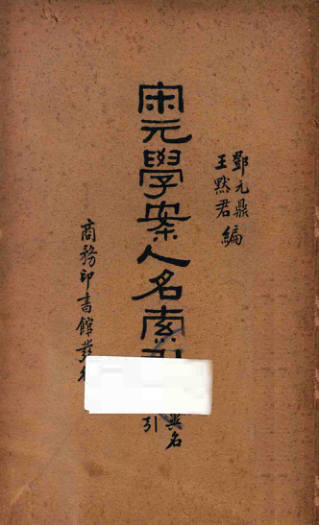 鄧元鼎
王默君 編
宋元學案人名索引
名
引
商務印書館發行